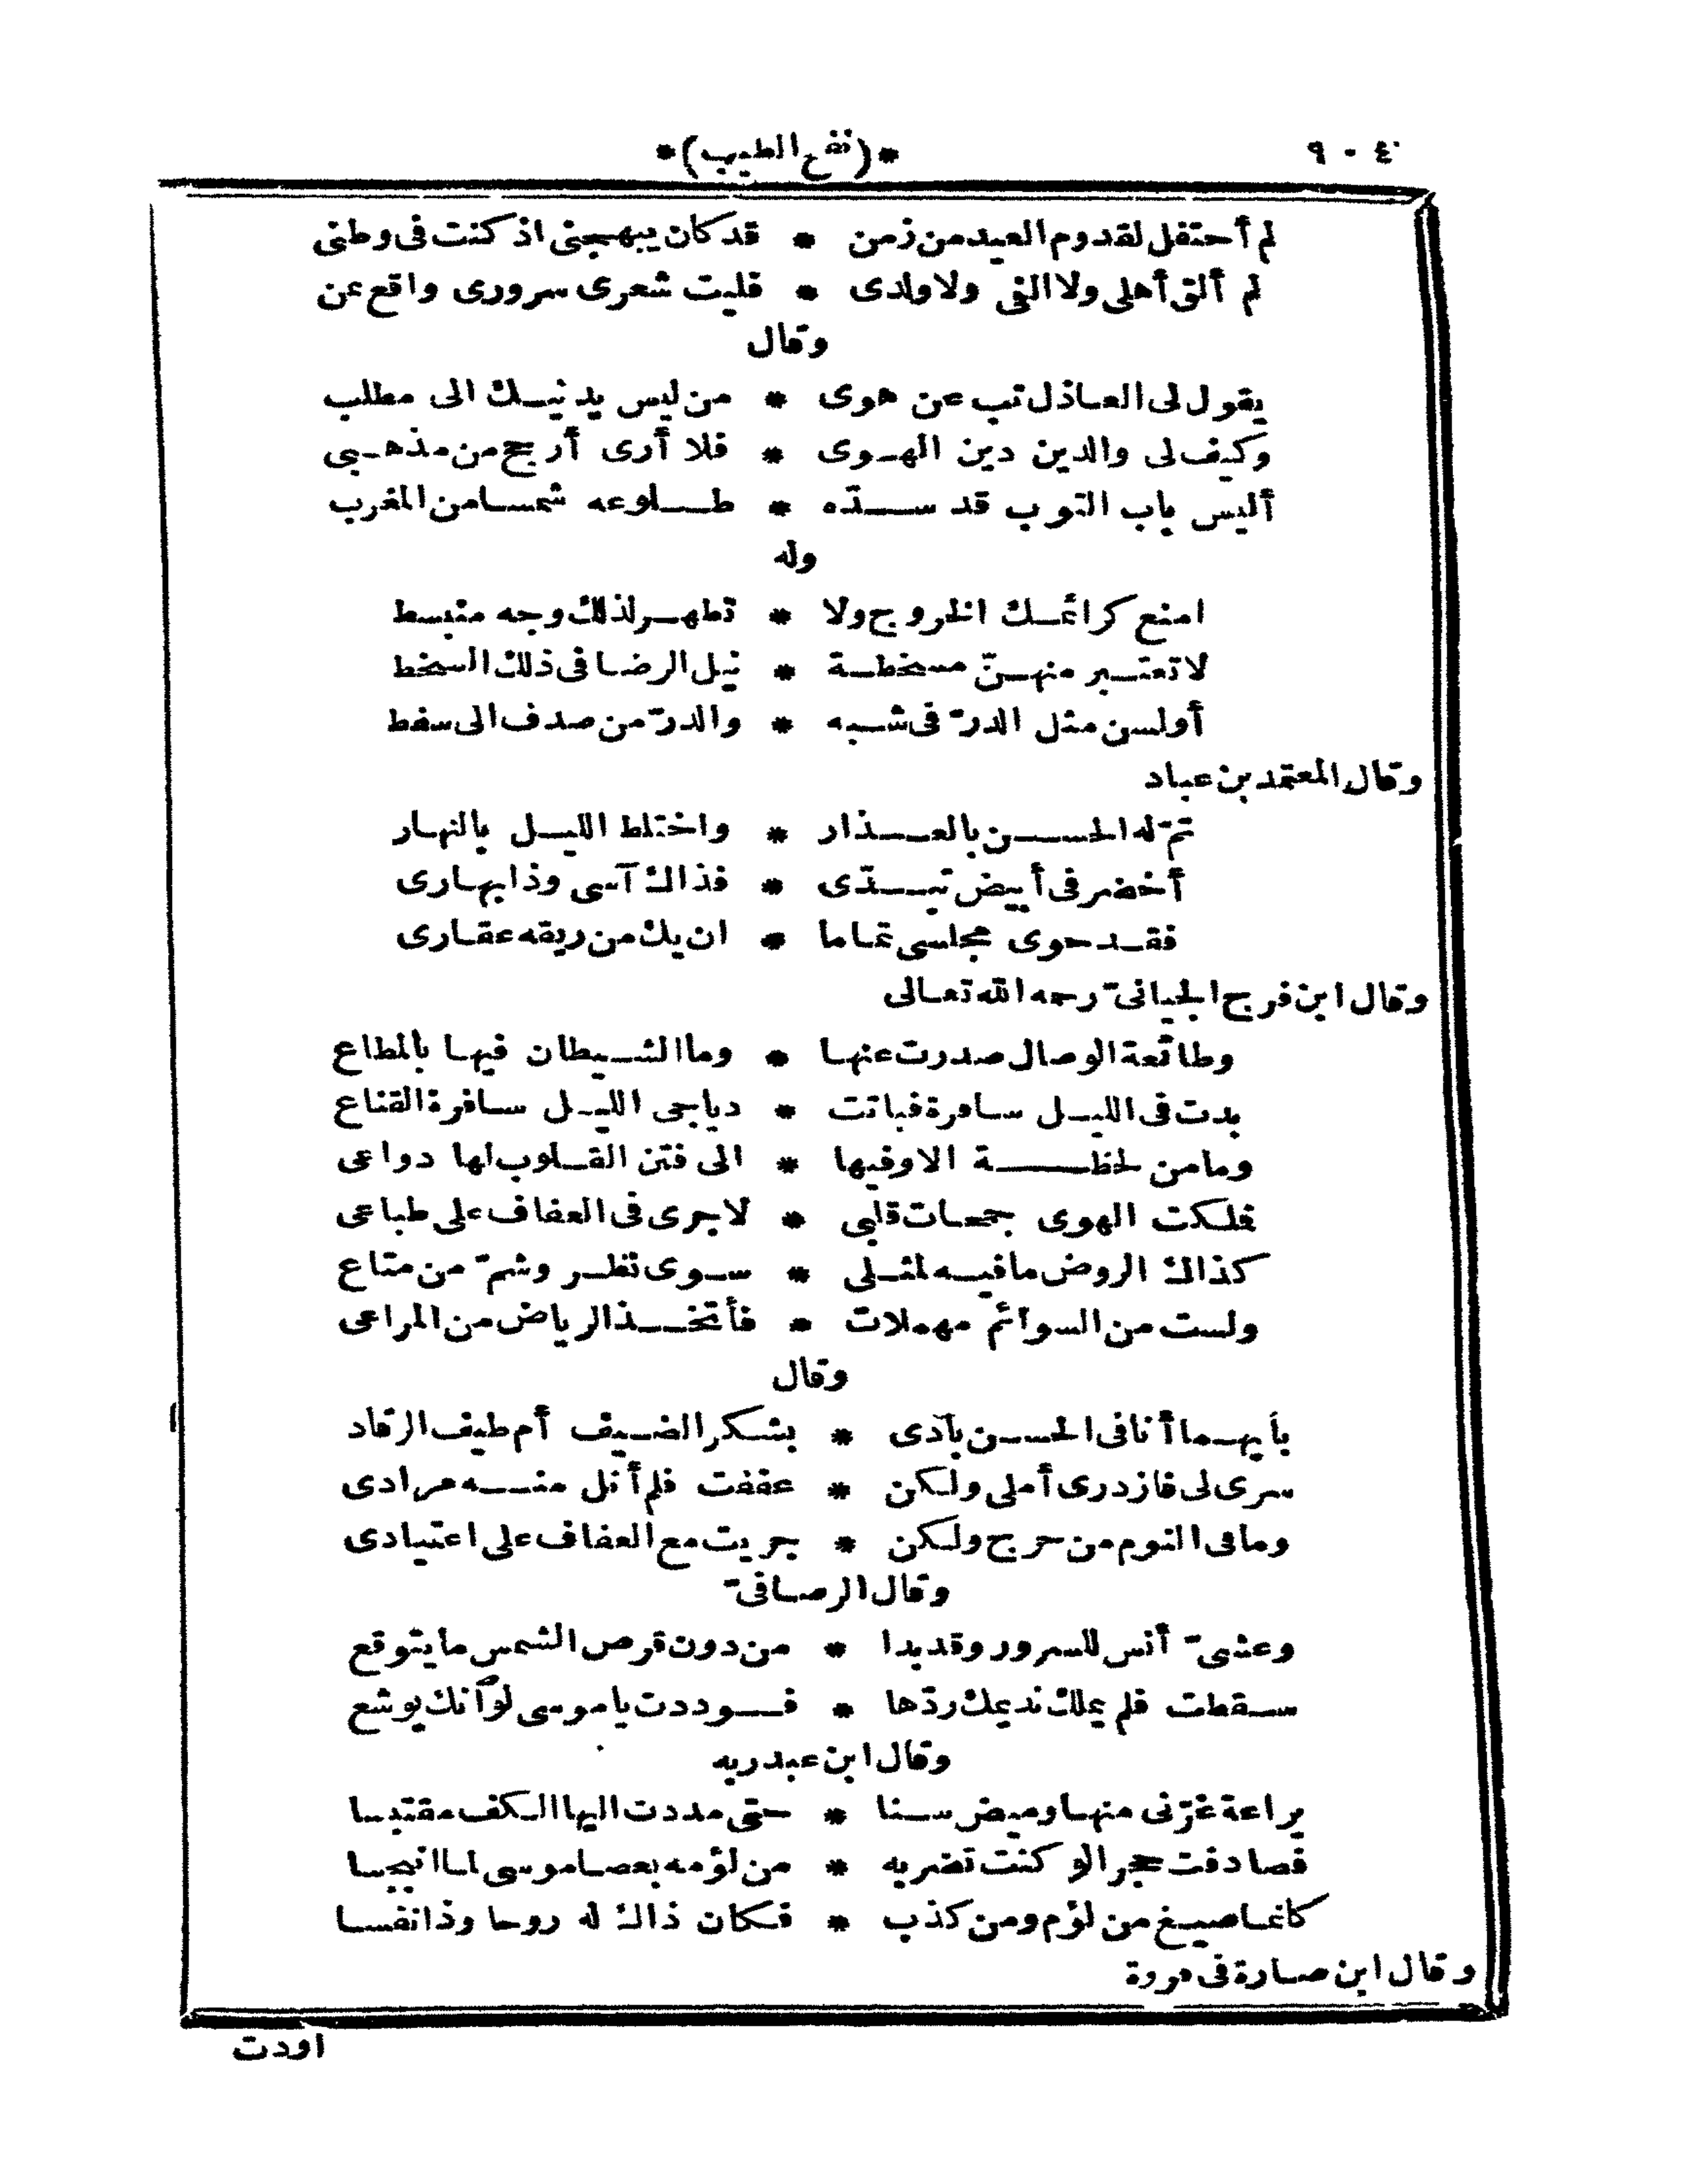 ٤٠٩ *(نفح الطيب)*
لم أحتفل لقدوم العيد من زمن * قد كان يبهجنى اذ كنت فى وطنى
لم ألق أهلى ولا الفى ولا ولدى * فليت شعرى سرورى واقع عن
وقال
يقول لى العاذل تب عن هوى * من ليس يدنيك الى مطلب
وكيف لى والدين دين الهوى * فلا أرى أرجع من مذهبى
أليس باب التوب قد سدّه * طلوعه شمسا من المغرب
وله
امنع كرائمك الخروج ولا * تظهر لذلك وجه منبسط
لا تعتبر منهنّ مسخطة * نيل الرضا فى ذلك السخط
أولسن مثل الدرّ فى شبه * والدرّ من صدف الى سفط
وقال المعتمد بن عباد
تمّ له الحسن بالعذار * واختلط الليل بالنهار
أخضر فى أبيض تبدّى * فذاك آسى وذا بهارى
فقد حوى مجلسى تماما * ان يك من ريقه عقارى
وقال ابن فرج الجيانىّ رحمه الله تعالى
وطائعة الوصال صدرت عنها * وما الشيطان فيها بالمطاع
بدت فى الليل سافرة فباتت * دياجى الليل سافرة القناع
وما من لحظة الا وفيها * الى فتن القلوب لها دواعى
فملكت الهوى جمحات قلبى * لاجرى فى العفاف على طباعى
كذاك الروض ما فيه لمثلى * سوى نظر وشمّ من متاع
ولست من السوائم مهملات * فأتخذ الرياض من المراعى
وقال
بأيهما أنا فى الحسن بادى * بشكر الضيف أم طيف الرقاد
سرى لى فازدرى أملى ولكن * عففت فلم أنل منه مرادى
وما فى النوم من حرج ولكن * جريت مع العفاف على اعتيادى
وقال الرصافىّ
وعشىّ أنس للسرور وقد بدا * من دون قرص الشمس ما يتوقع
سقطت فلم يملك نديمك ردّها * فوددت يا موسى لو آنك يوشع
وقال ابن عبد ربه
يراعة غرّنى منها وميض سنا * حتى مددت اليها الكف مقتبسا
فصادفت حجرا لو كنت تضربه * من لؤمه بعصا موسى لما انبجسا
كأنما صيغ من لؤم ومن كذب * فكان ذاك له روحا وذا نفسا
وقال ابن صارة فى فروة
اودت